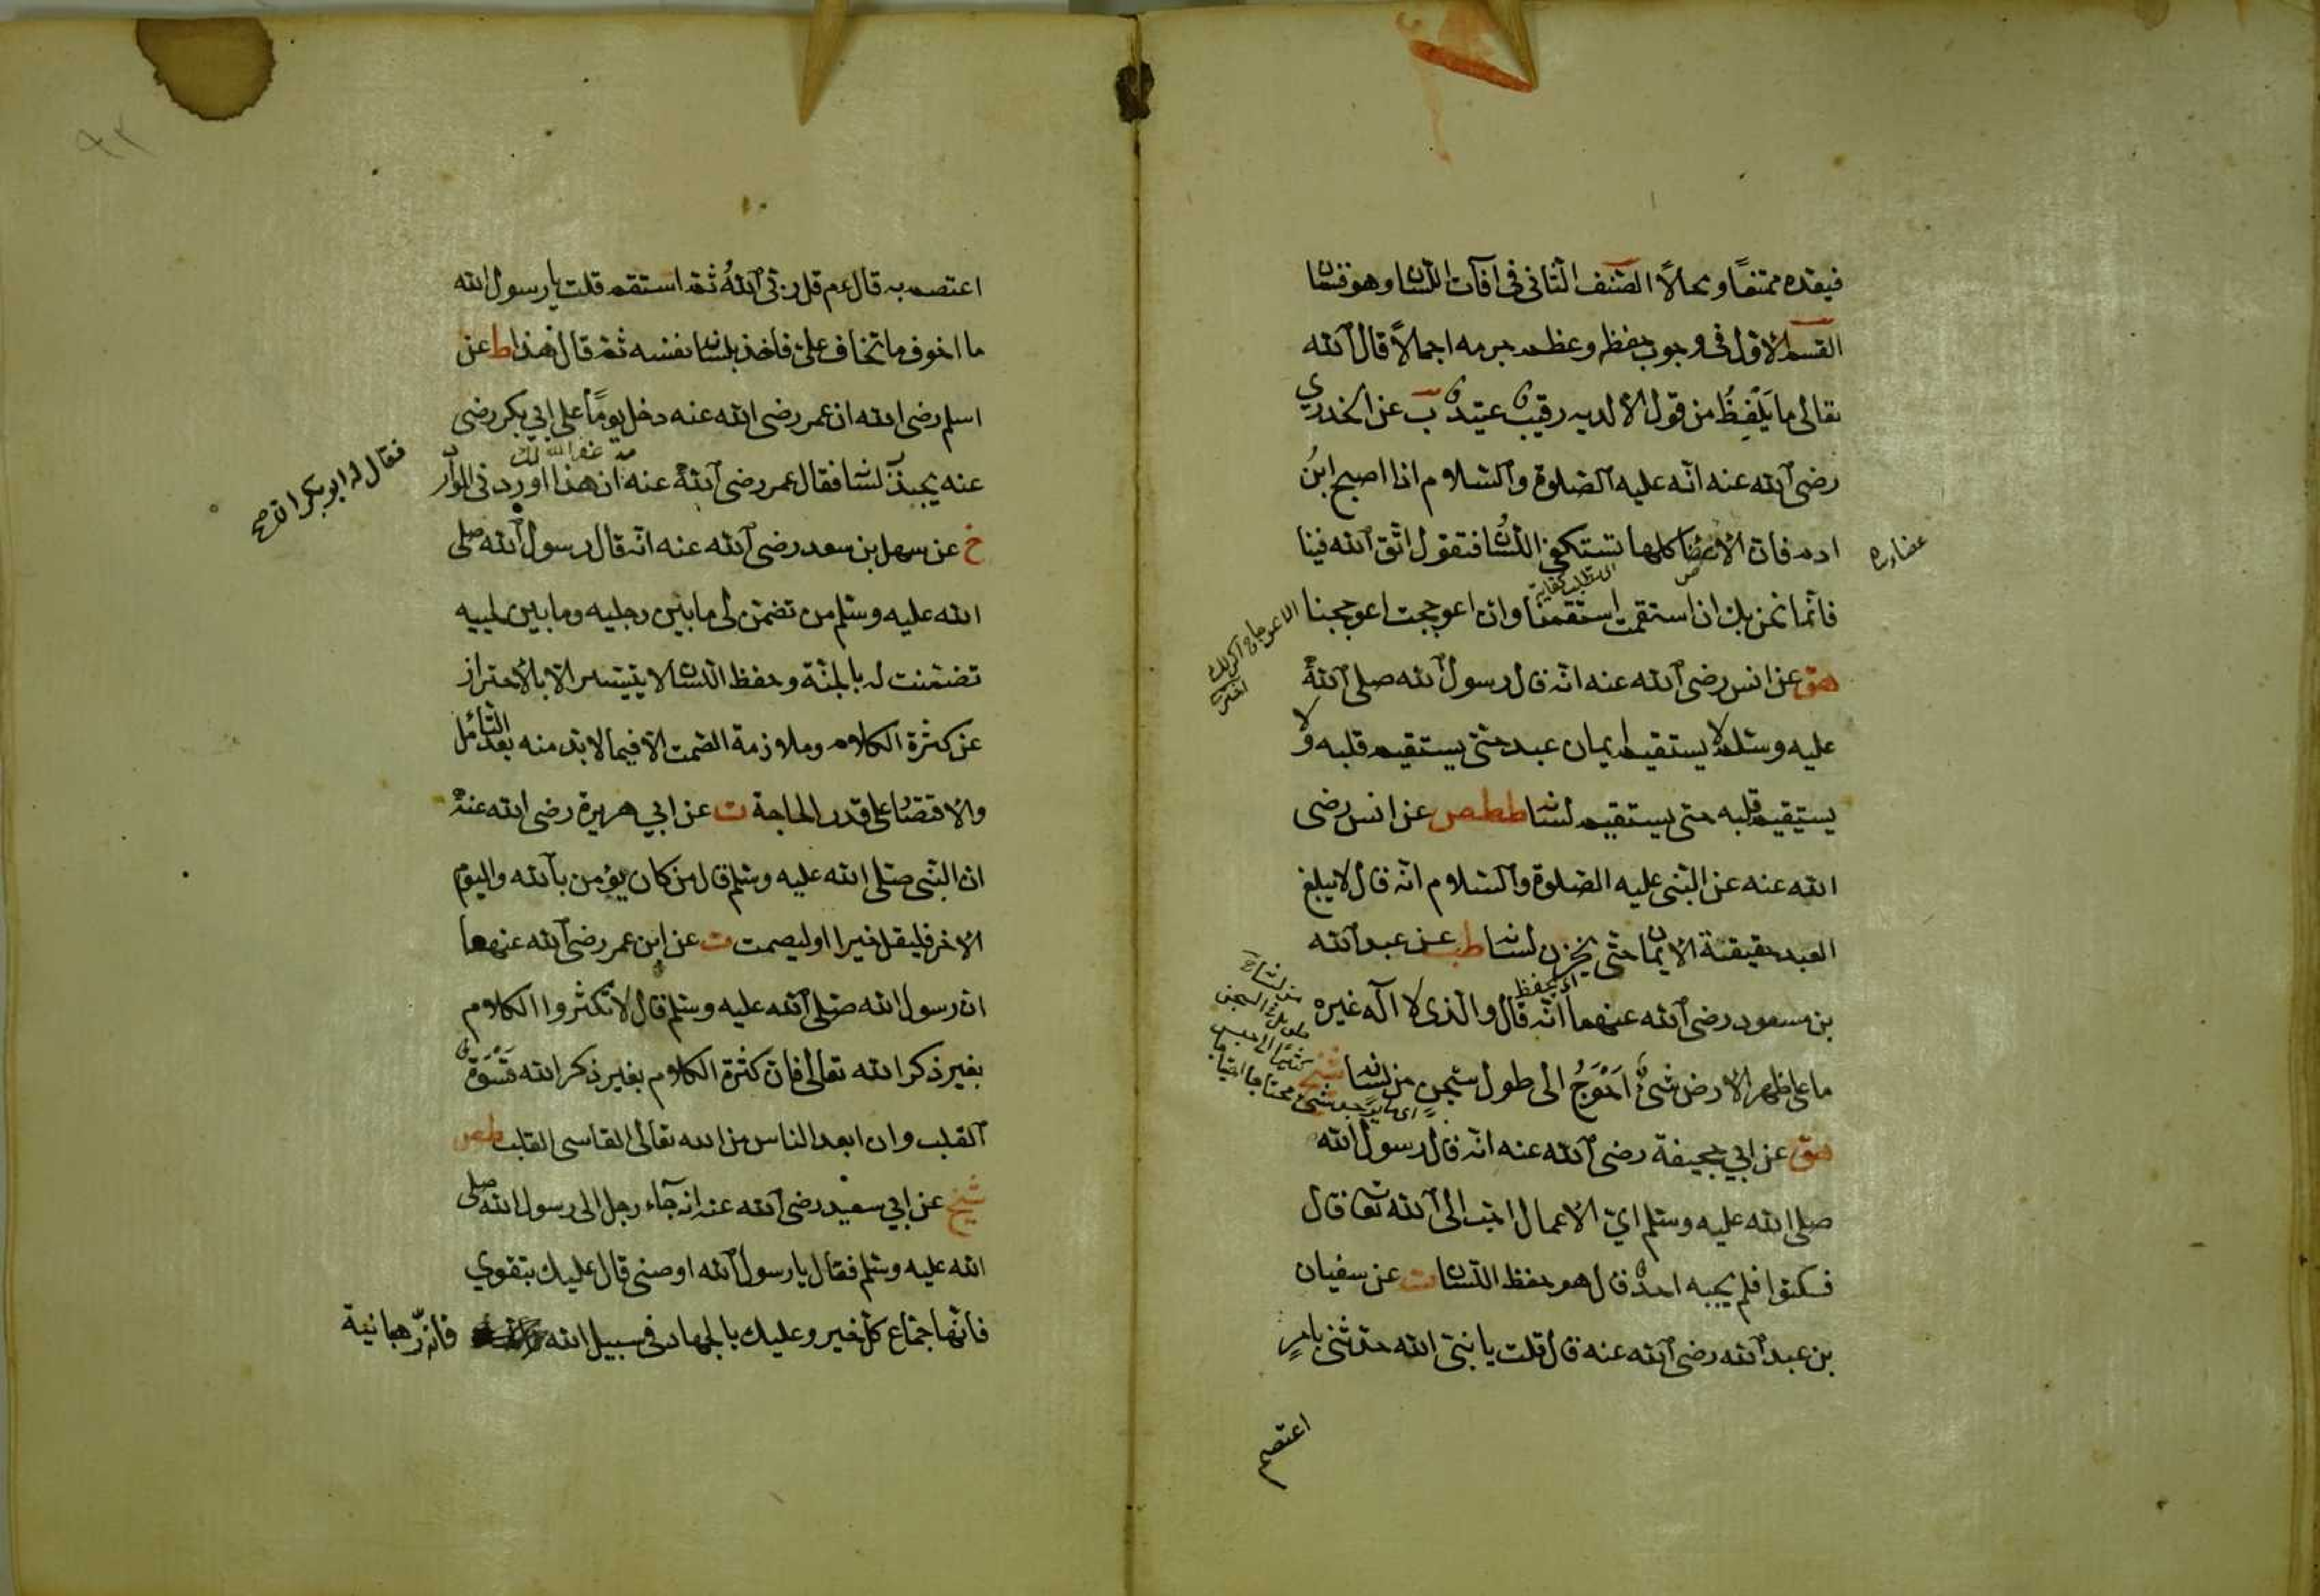 فيقده ممتنعًا ومحالاً الصّنف الثانى فى آفات اللسان وهو قسمان
القسم الاوّل فى وجوب حفظه وعظم جرمه اجمالاً قال الله
تعالى ما يَلْفِظُ من قول الا لديه رقيب عتيد ت عن الخدري
رضى الله عنه انّه عليه الصلوة والسلام اذا اصبح ابنُ
ادم فان الاعضا كلها تستكفى اللسان فتقول اتّق الله فينا
عضاء
فانّما نحن بك ان استقمت استقمنا وان اعوججت اعوججنا
هق عن انس رضى الله عنه انّه قال رسول الله صلى الله
عليه وسلم لا يستقيم ايمان عبد حتّى يستقيم قلبه ولا
يستقيم قلبه حتى يستقيم لسانه ططص عن انس رضى
الله عنه عن النبى عليه الصلوة والسلام انّه قال لا يبلغ
العبد حقيقة الايمان حتّى يخزن لسانه طب عن عبد الله
اى يحفظ
بن مسعود رضى الله عنهما انّه قال والّذى لا اله غيره
ما على ظهر الارض شئٌ اَحْوَجُ الى طول سجن من لسان شيخ
هق عن ابي جحيفة رضى الله عنه انّه قال رسول الله
صلى الله عليه وسلم ايّ الاعمال احبّ الى الله تعا قال
فسكتوا فلم يجبه احد قال هو حفظ اللسان ت عن سفيان
بن عبد الله رضى الله عنه قال قلت يا نبىّ الله حدثنى بامرٍ
اعتصم
اعتصم به قال عم قل ربّى اللهُ ثم استقم قلت يا رسول الله
ما اخوف ما تخاف علىّ فاخذ بلسان نفسه ثم قال هذا ط عن
اسلم رضى الله ان عمر رضى الله عنه دخل يومًا على ابي بكر رضى
مه غفر الله لك
عنه يجبذ لسانه فقال عمر رضى الله عنه ان هذا اوردنى الموارد
فقال له ابو بكر
خ عن سهل بن سعد رضى الله عنه انّه قال رسول الله صلى
الله عليه وسلم من تضمّن لى ما بين رجليه وما بين لحييه
تضمّنت له بالجنّة وحفظ اللسان لا يتيسر الا بالاحتراز
عن كثرة الكلام وملازمة الصّمت الا فيما لا بدّ منه بعد التأمل
والاقتصار على قدر الحاجة ت عن ابي هريرة رضى الله عنه
ان النّبى صلى الله عليه وسلم قال من كان يؤمن بالله واليوم
الاخر فليقل خيرا او ليصمت ت عن ابن عمر رضى الله عنهما
ان رسول الله صلى الله عليه وسلم قال لا تكثروا الكلام
بغير ذكر الله تعالى فان كثرة الكلام بغير ذكر الله قَسْوَة
القلب وان ابعد الناس من الله تعالى القاسى القلب طص
شيخ عن ابي سعيد رضى الله عنه انه جاء رجل الى رسول الله صلى
الله عليه وسلم فقال يا رسول الله اوصنى قال عليك بتقوي
فانّها جماع كلّ خير وعليك بالجهاد فى سبيل الله فانّه رهبانية